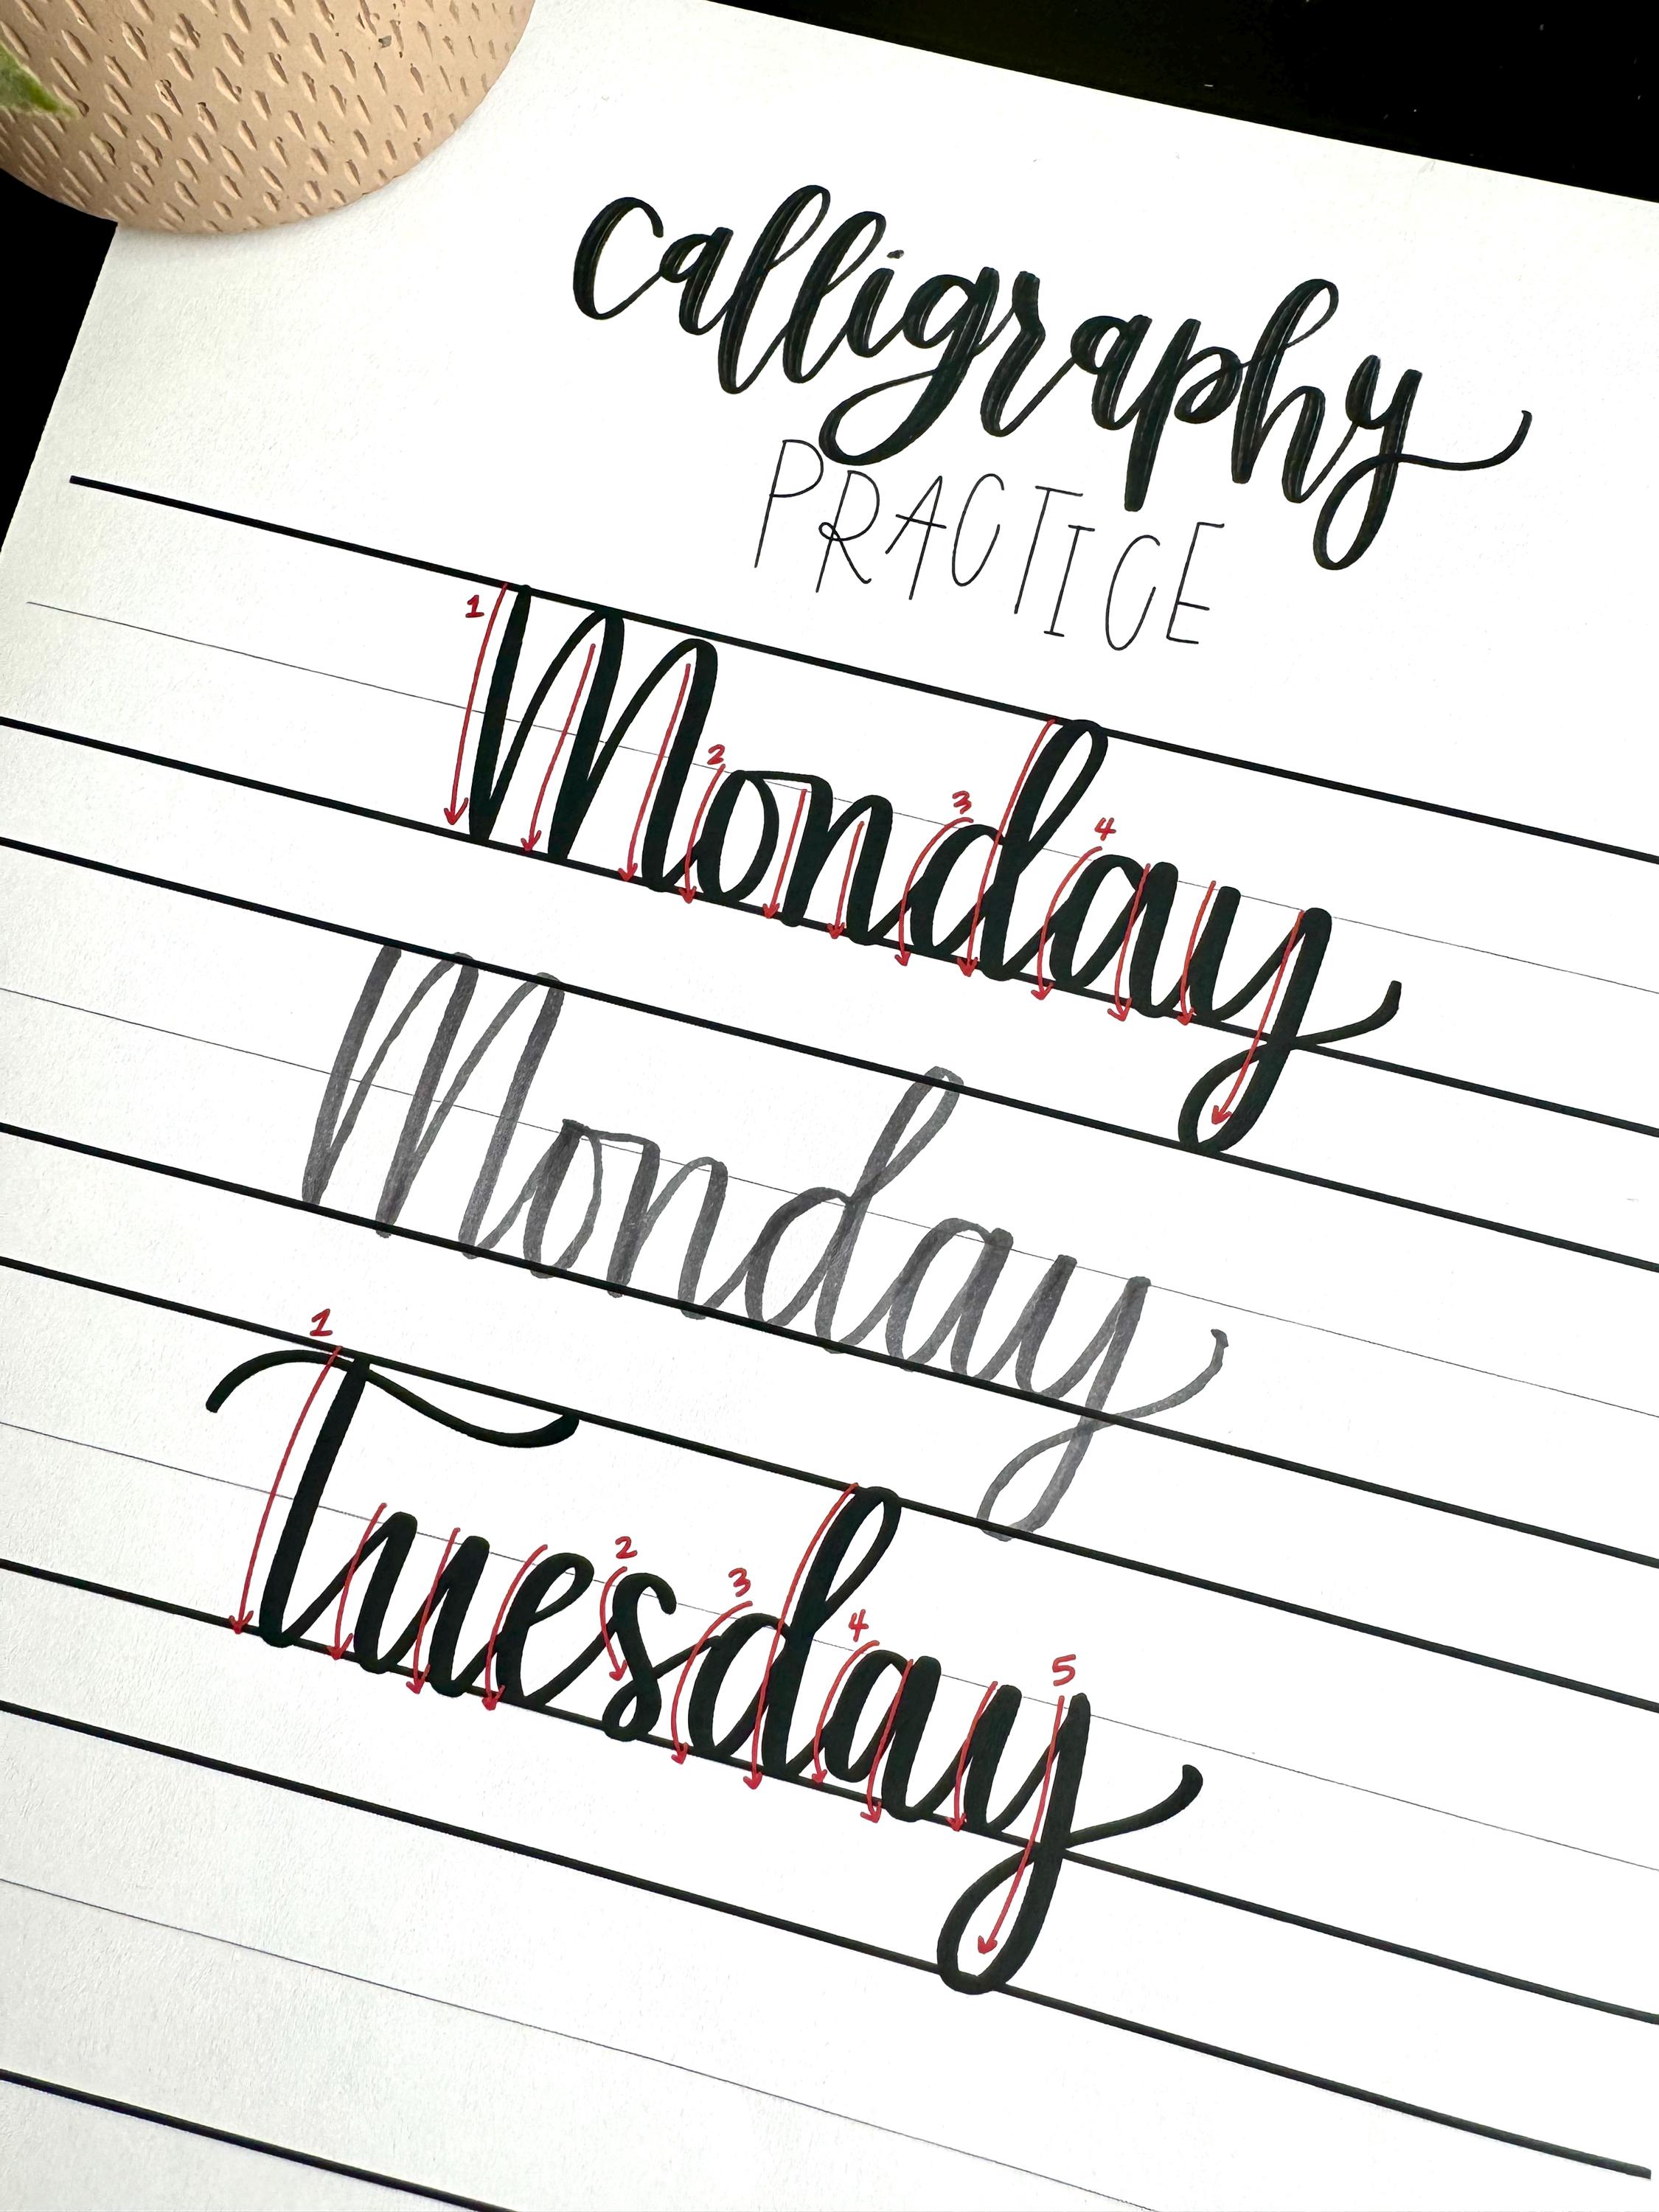 calligraphy
PRACTICE
1 2 3 4
Monday
Monday
1 2 3 4 5
Tuesday